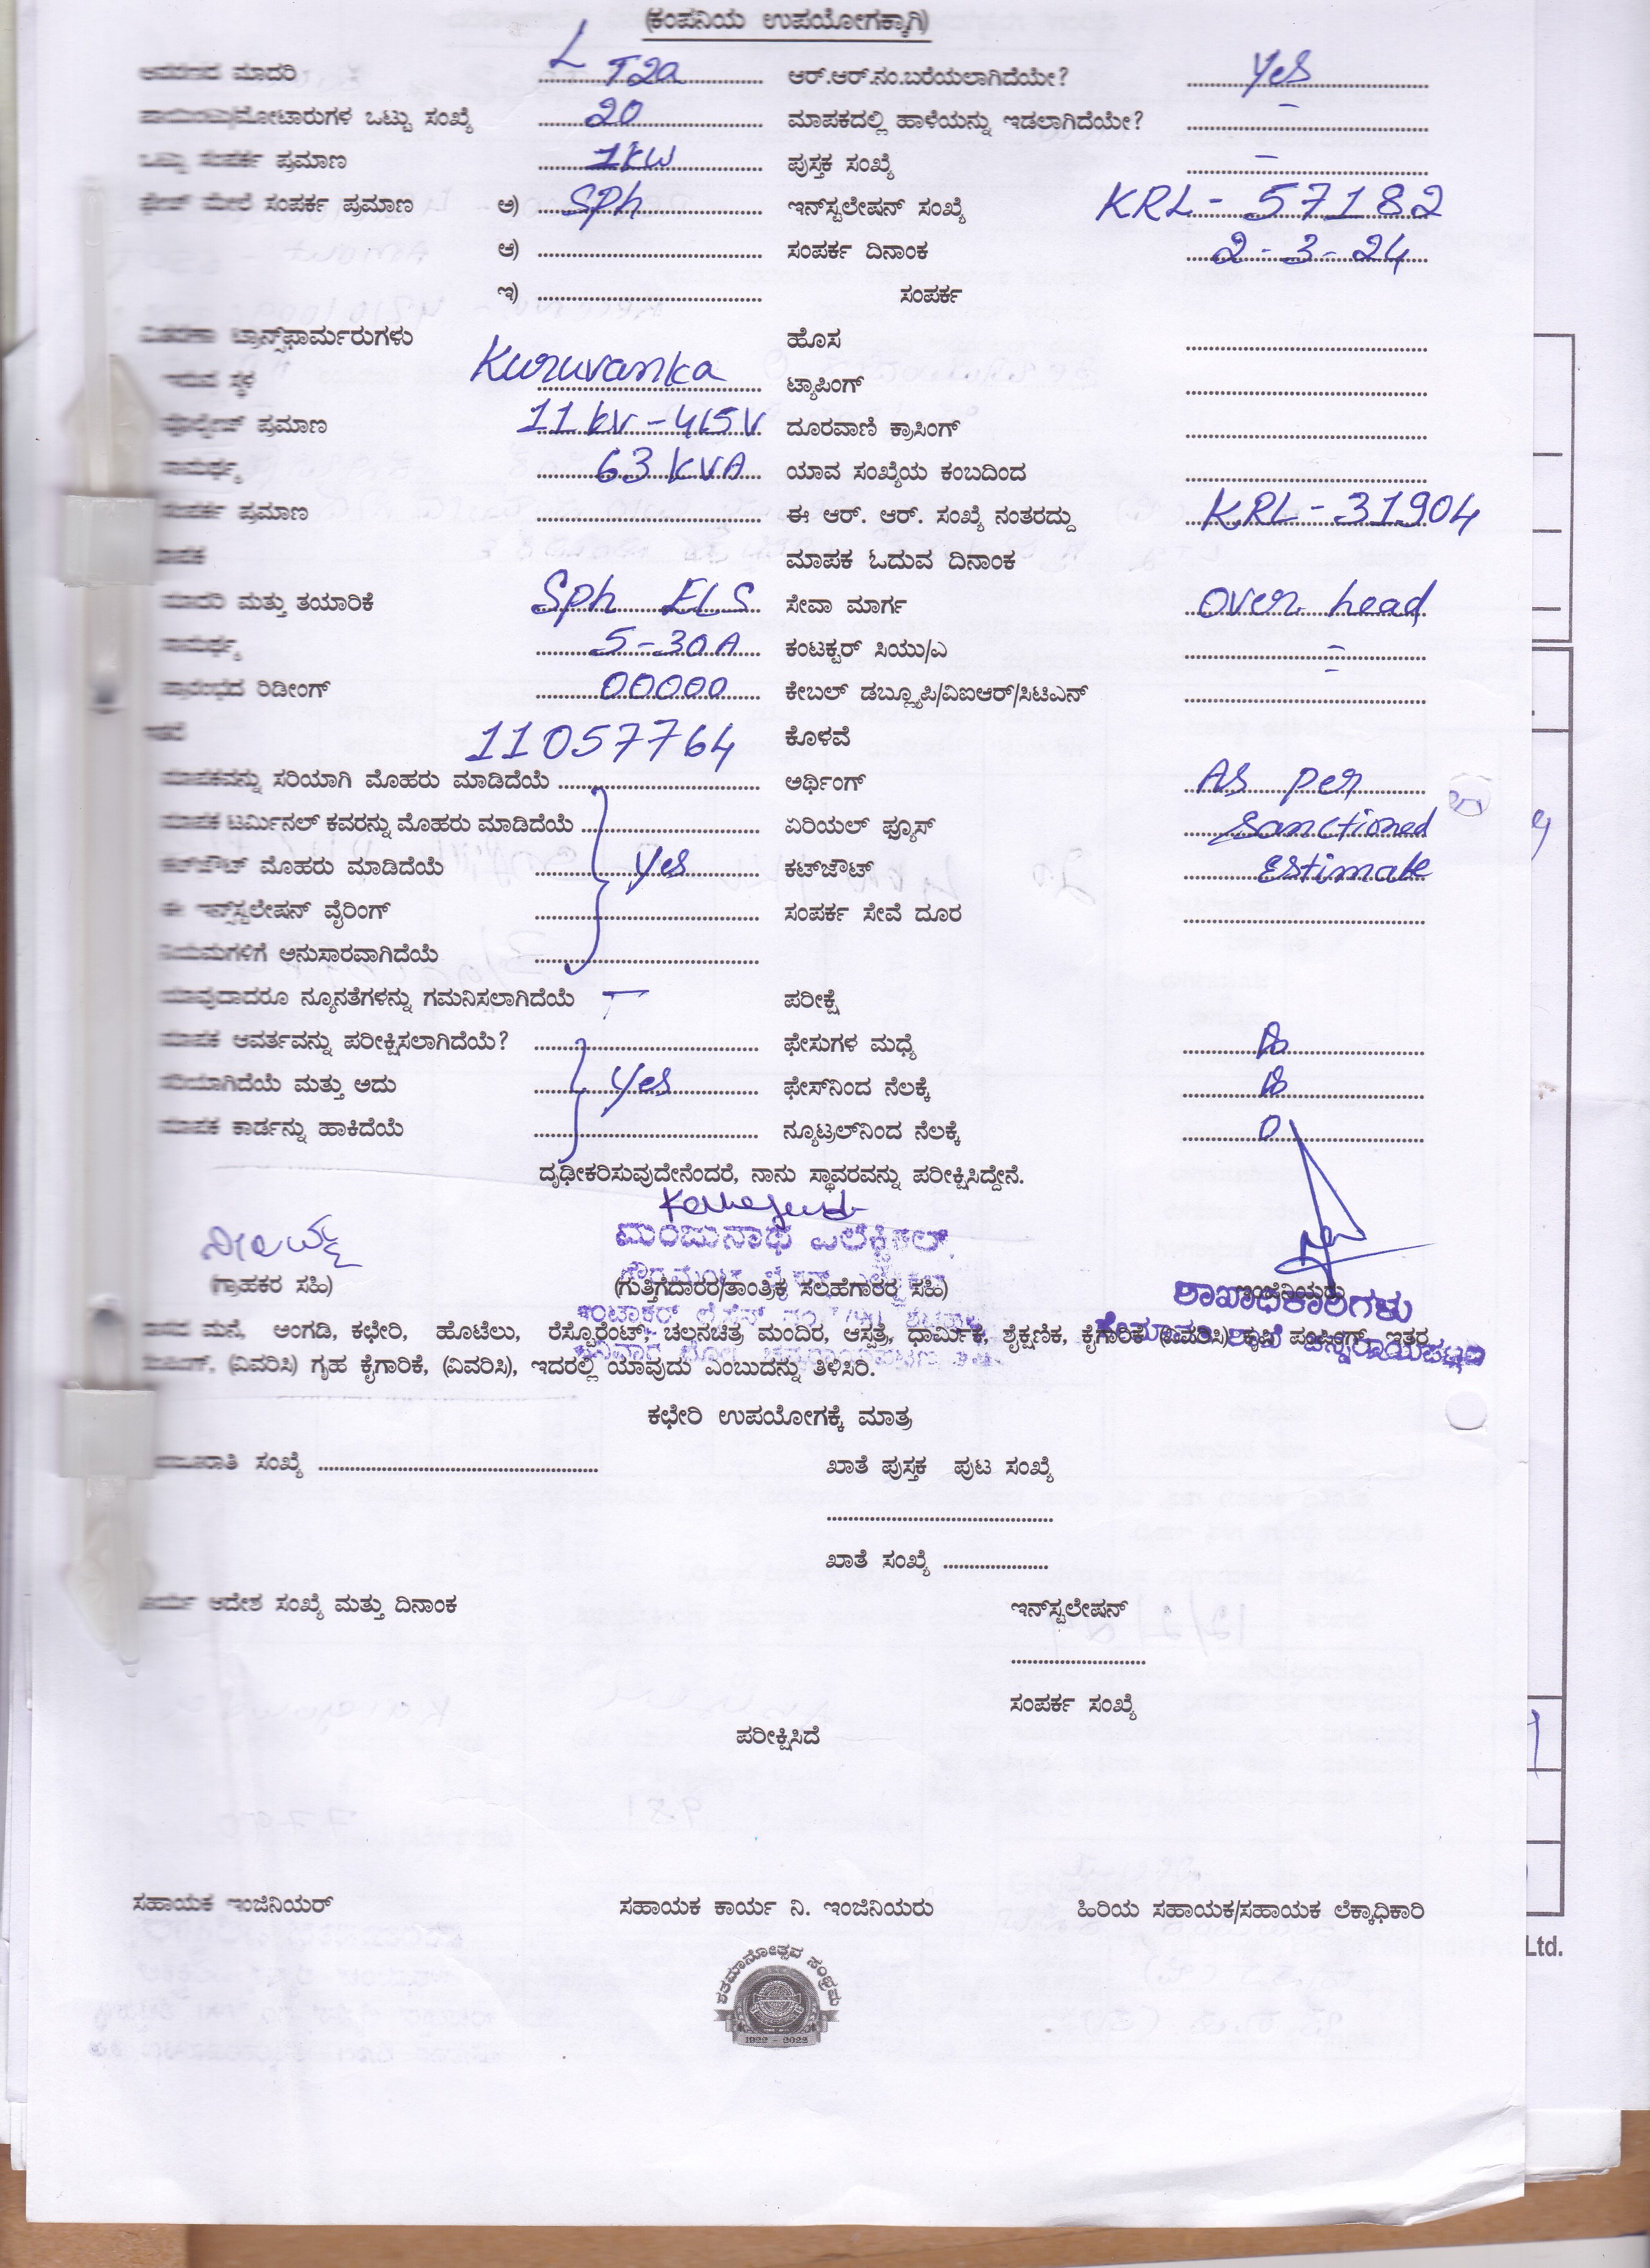 (ಕಂಪನಿಯ ಉಪಯೋಗಕ್ಕಾಗಿ)
ಮಾದರಿ L T2a ಆರ್.ಆರ್.ನಂ.ಬರೆಯಲಾಗಿದೆಯೇ? Yes
ಮೋಟಾರುಗಳ ಒಟ್ಟು ಸಂಖ್ಯೆ 20 ಮಾಪಕದಲ್ಲಿ ಹಾಳೆಯನ್ನು ಇಡಲಾಗಿದೆಯೇ? -
ಒಟ್ಟು ಸಂಪರ್ಕ ಪ್ರಮಾಣ 1KW ಪುಸ್ತಕ ಸಂಖ್ಯೆ -
ಫೇಜ್ ಮೇಲೆ ಸಂಪರ್ಕ ಪ್ರಮಾಣ ಅ) SPh ಇನ್‌ಸ್ಟಲೇಷನ್ ಸಂಖ್ಯೆ KRL - 57182
ಆ) ಸಂಪರ್ಕ ದಿನಾಂಕ 2-3-24
ಇ) ಸಂಪರ್ಕ
ವಿತರಣಾ ಟ್ರಾನ್ಸ್‌ಫಾರ್ಮರುಗಳು ಹೊಸ
ಇರುವ ಸ್ಥಳ Kuruvanka ಟ್ಯಾಪಿಂಗ್
ಪ್ರಮಾಣ 11 kV - 415 V ದೂರವಾಣಿ ಕ್ರಾಸಿಂಗ್
ಸಾಮರ್ಥ್ಯ 63 KVA ಯಾವ ಸಂಖ್ಯೆಯ ಕಂಬದಿಂದ
ಸಂಪರ್ಕ ಪ್ರಮಾಣ ಈ ಆರ್. ಆರ್. ಸಂಖ್ಯೆ ನಂತರದ್ದು KRL - 31904
ಮಾಪಕ ಮಾಪಕ ಓದುವ ದಿನಾಂಕ
ಮಾದರಿ ಮತ್ತು ತಯಾರಿಕೆ Sph ELS ಸೇವಾ ಮಾರ್ಗ over head
ಸಾಮರ್ಥ್ಯ 5-30A ಕಂಟಕ್ಟರ್ ಸಿಯು/ಎ -
ಪ್ರಾರಂಭದ ರಿಡೀಂಗ್ 00000 ಕೇಬಲ್ ಡಬ್ಲ್ಯೂಪಿ/ವಿಐಆರ್/ಸಿಟಿಎನ್ -
ಇತರೆ 11057764 ಕೊಳವೆ
ಮಾಪಕವನ್ನು ಸರಿಯಾಗಿ ಮೊಹರು ಮಾಡಿದೆಯೆ ಅರ್ಥಿಂಗ್ As per
ಮಾಪಕ ಟರ್ಮಿನಲ್ ಕವರನ್ನು ಮೊಹರು ಮಾಡಿದೆಯೆ ಏರಿಯಲ್ ಫ್ಯೂಸ್ Sanctioned
ಕಟ್‌ಔಟ್ ಮೊಹರು ಮಾಡಿದೆಯೆ Yes ಕಟ್‌ಔಟ್ Estimate
ಈ ಇನ್‌ಸ್ಟಲೇಷನ್ ವೈರಿಂಗ್ ಸಂಪರ್ಕ ಸೇವೆ ದೂರ
ನಿಯಮಗಳಿಗೆ ಅನುಸಾರವಾಗಿದೆಯೆ
ಯಾವುದಾದರೂ ನ್ಯೂನತೆಗಳನ್ನು ಗಮನಿಸಲಾಗಿದೆಯೆ - ಪರೀಕ್ಷೆ
ಮಾಪಕ ಆವರ್ತವನ್ನು ಪರೀಕ್ಷಿಸಲಾಗಿದೆಯೆ? ಫೇಸುಗಳ ಮಧ್ಯೆ
ಸರಿಯಾಗಿದೆಯೆ ಮತ್ತು ಅದು Yes ಫೇಸ್‌ನಿಂದ ನೆಲಕ್ಕೆ
ಮಾಪಕ ಕಾರ್ಡನ್ನು ಹಾಕಿದೆಯೆ ನ್ಯೂಟ್ರಲ್‌ನಿಂದ ನೆಲಕ್ಕೆ 0
ದೃಢೀಕರಿಸುವುದೇನೆಂದರೆ, ನಾನು ಸ್ಥಾವರವನ್ನು ಪರೀಕ್ಷಿಸಿದ್ದೇನೆ.
ಮಂಜುನಾಥ ಎಲೆಕ್ಟ್ರಿಕಲ್.
(ಗ್ರಾಹಕರ ಸಹಿ) (ಗುತ್ತಿಗೆದಾರರ/ತಾಂತ್ರಿಕ ಸಲಹೆಗಾರರ ಸಹಿ) ಇಂಜಿನಿಯರು
ಶಾಖಾಧಿಕಾರಿಗಳು
ಮನೆ, ಅಂಗಡಿ, ಕಛೇರಿ, ಹೊಟೆಲು, ರೆಸ್ಟೊರೆಂಟ್, ಚಲನಚಿತ್ರ ಮಂದಿರ, ಆಸ್ಪತ್ರೆ, ಧಾರ್ಮಿಕ, ಶೈಕ್ಷಣಿಕ, ಕೈಗಾರಿಕೆ (ವಿವರಿಸಿ) ಕೃಷಿ ಪಂಪಿಂಗ್, ಇತರ
(ವಿವರಿಸಿ) ಗೃಹ ಕೈಗಾರಿಕೆ, (ವಿವರಿಸಿ), ಇದರಲ್ಲಿ ಯಾವುದು ಎಂಬುದನ್ನು ತಿಳಿಸಿರಿ.
ಕಛೇರಿ ಉಪಯೋಗಕ್ಕೆ ಮಾತ್ರ
ಸಂಖ್ಯೆ ಖಾತೆ ಪುಸ್ತಕ ಪುಟ ಸಂಖ್ಯೆ
ಖಾತೆ ಸಂಖ್ಯೆ
ಕಾರ್ಯ ಆದೇಶ ಸಂಖ್ಯೆ ಮತ್ತು ದಿನಾಂಕ ಇನ್‌ಸ್ಟಲೇಷನ್
ಸಂಪರ್ಕ ಸಂಖ್ಯೆ
ಪರೀಕ್ಷಿಸಿದೆ
ಸಹಾಯಕ ಇಂಜಿನಿಯರ್ ಸಹಾಯಕ ಕಾರ್ಯ ನಿ. ಇಂಜಿನಿಯರು ಹಿರಿಯ ಸಹಾಯಕ/ಸಹಾಯಕ ಲೆಕ್ಕಾಧಿಕಾರಿ
Ltd.
ಶತಮಾನೋತ್ಸವ ಸಂಭ್ರಮ
1922 - 2022